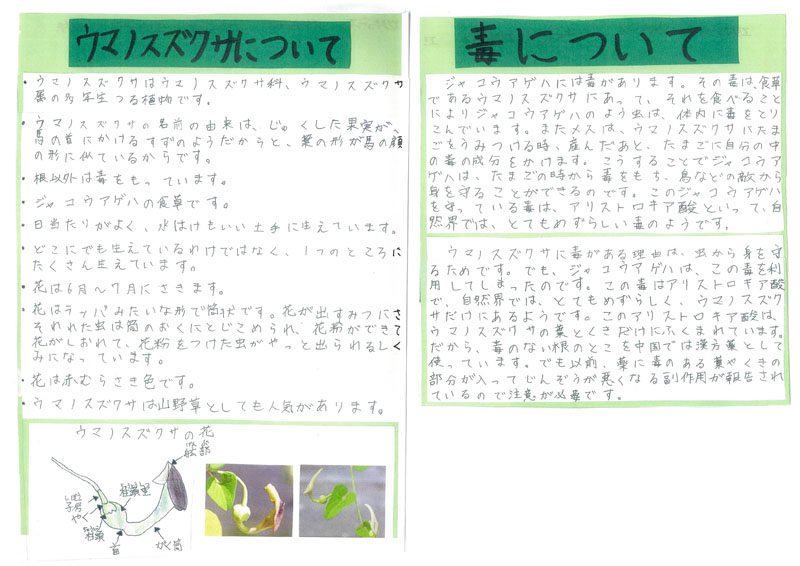 ウマノスズクサについて
・ウマノスズクサはウマノスズクサ科、ウマノスズクサ
属の多年生つる植物です。
・ウマノスズクサの名前の由来は、じゅくした果実が、
馬の首にかけるすずのようだからと、葉の形が馬の顔
の形に似ているからです。
・根以外は毒をもっています。
・ジャコウアゲハの食草です。
・日当たりがよく、水はけもいい土手に生えています。
・どこにでも生えているわけではなく、1つのところに
たくさん生えています。
・花は6月〜7月にさきます。
・花はラッパみたいな形で筒状です。花が出すみつにさ
そわれた虫は筒のおくにとじこめられ、花粉ができて
花がしおれて、花粉をつけた虫がやっと出られるしく
みになっています。
・花は赤むらさき色です。
・ウマノスズクサは山野草としても人気があります。
ウマノスズクサの花
子房
やく
柱頭
首
がく筒
毒について
ジャコウアゲハには毒があります。その毒は、食草
であるウマノスズクサにあって、それを食べること
によりジャコウアゲハのよう虫は、体内に毒をとり
こんでいます。またメスは、ウマノスズクサにたま
ごをうみつける時、産んだあと、たまごに自分の中
の毒の成分をかけます。こうすることでジャコウア
ゲハは、たまごの時から毒をもち、鳥などの敵から
身を守ることができるのです。このジャコウアゲハ
を守っている毒は、アリストロキア酸といって、自
然界では、とてもめずらしい毒のようです。
ウマノスズクサに毒がある理由は、虫から身を守
るためです。でも、ジャコウアゲハは、この毒を利
用してしまったのです。この毒はアリストロキア酸
で、自然界では、とてもめずらしく、ウマノスズク
サだけにあるようです。このアリストロキア酸は、
ウマノスズクサの葉とくきだけにふくまれています。
だから、毒のない根のとこを中国では漢方薬として
使っています。でも以前、薬に毒のある葉やくきの
部分が入ってじんぞうが悪くなる副作用が報告され
ているので注意が必要です。